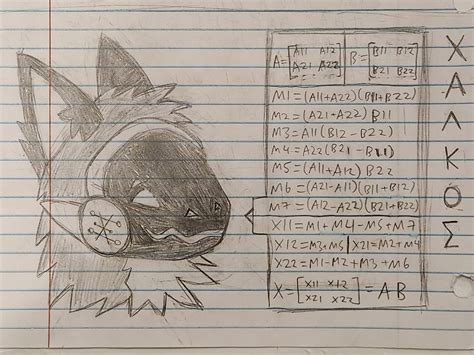 A = [A11 A12 A21 A22] B = [B11 B12 B21 B22]
M1 = (A11+A22)(B11+B22)
M2 = (A21+A22) B11
M3 = A11(B12 - B22)
M4 = A22(B21 - B11)
M5 = (A11+A12) B22
M6 = (A21-A11)(B11+B12)
M7 = (A12-A22)(B21+B22)
X11 = M1 + M4 - M5 + M7
X12 = M3+M5 | X21 = M2 + M4
X22 = M1-M2+M3+M6
X = [X11 X12 X21 X22] = AB
ΧΑΛΚΟΣ